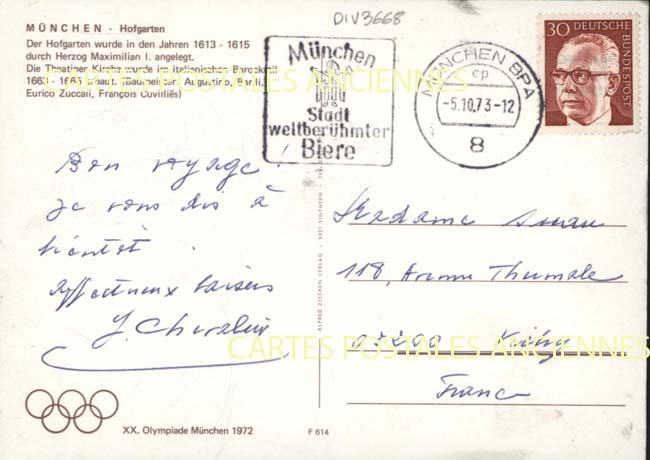 DIV3668
MÜNCHEN - Hofgarten
Der Hofgarten wurde in den Jahren 1613 - 1615
durch Herzog Maximilian I. angelegt.
Die Theatiner Kirche wurde im italienischen Barockstil
1663 - 1685 erbaut. (Baumeister Augustino, Barelli,
Eurico Zuccali, François Cuvilliés)
München
Stadt
weltberühmter
Biere
MÜNCHEN BPA
cp
-5.10.73-12
8
30 DEUTSCHE
BUNDESPOST
CARTES POSTALES ANCIENNES
Bon voyage !
je vous dis à
bientôt.
Affectueux baisers
J. Chevalier
Madame
118, Avenue Thermale
03200 Vichy
France
CARTES POSTALES ANCIENNES
ALFRED ZIETHEN VERLAG
XX. Olympiade München 1972
F 614